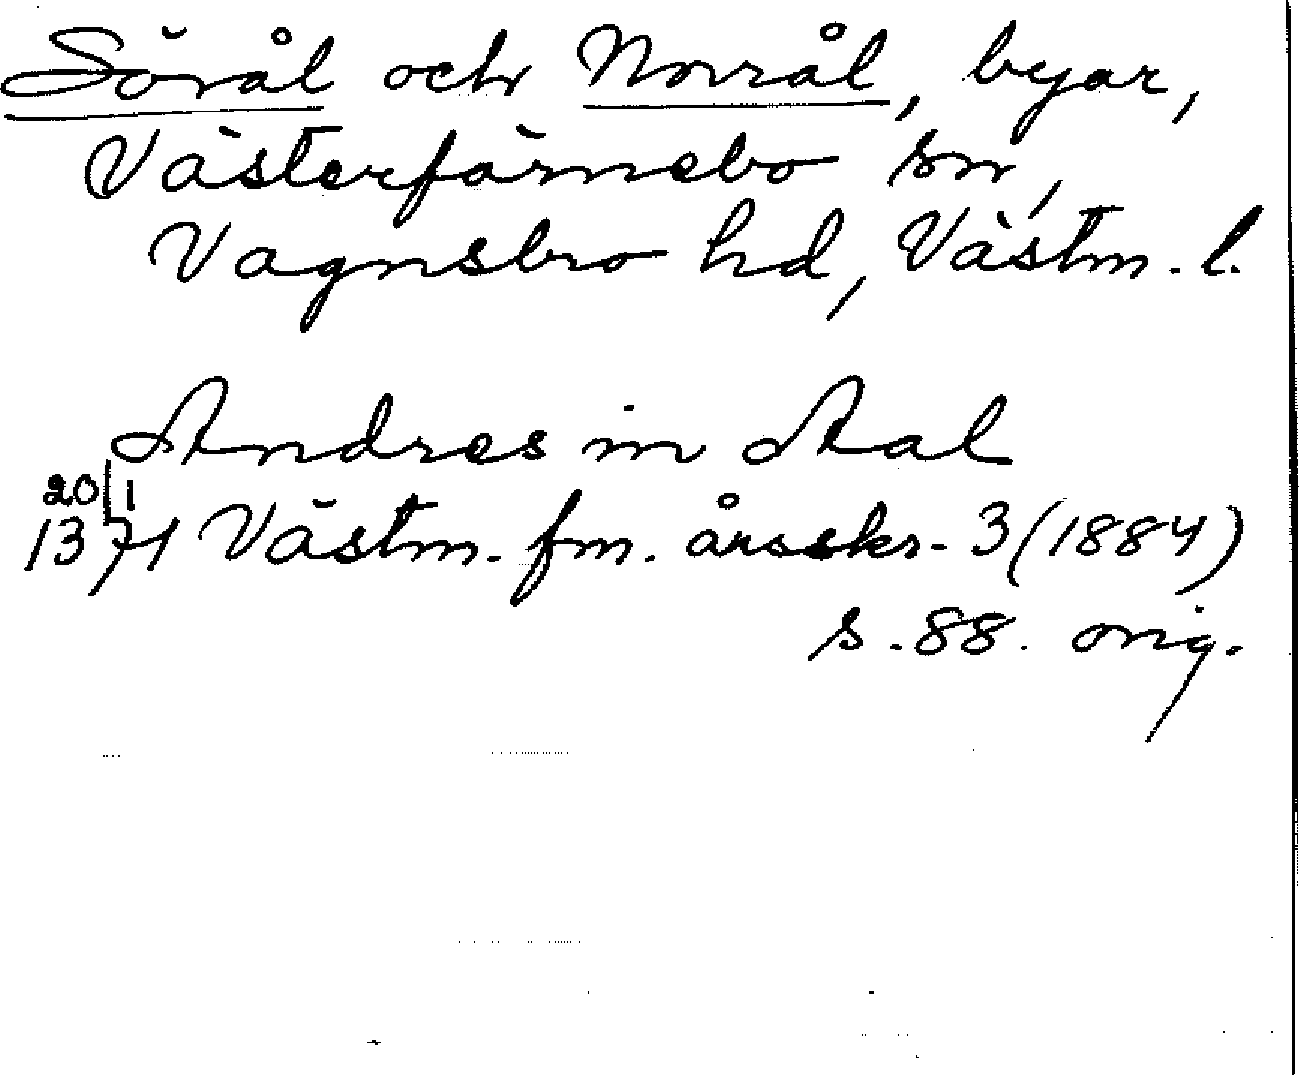 Sörål och Norrål, byar,
Västerfärnebo sn,
Vagnsbro hd, Västm. l.
Andres in Aal
20/1
1371 Västm. fm. årsskr. 3 (1884)
s. 88. orig.